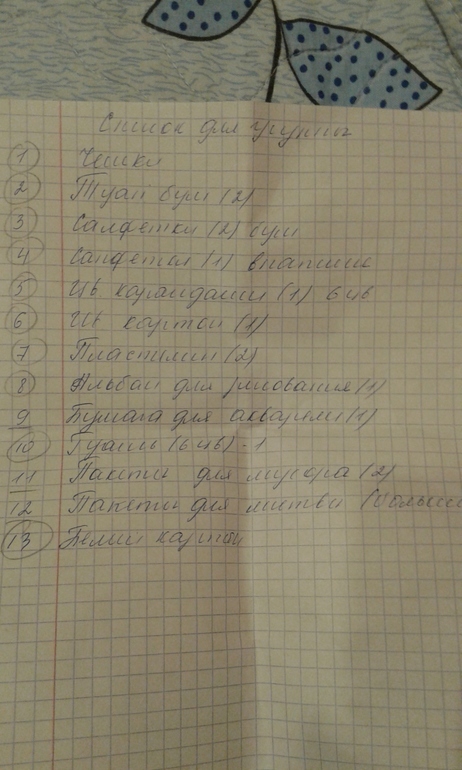 Список для группы
1 Чешки
2 Туал бум (2)
3 Салфетки (2) бум
4 Салфетки (1) влажные
5 Цв карандаши (1) 6 цв
6 Цв картон (1)
7 Пластилин (2)
8 Альбом для рисования (1)
9 Бумага для акварели (1)
10 Гуашь (6 цв) - 1
11 Пакеты для мусора (2)
12 Пакеты для листвы
13 Белый картон